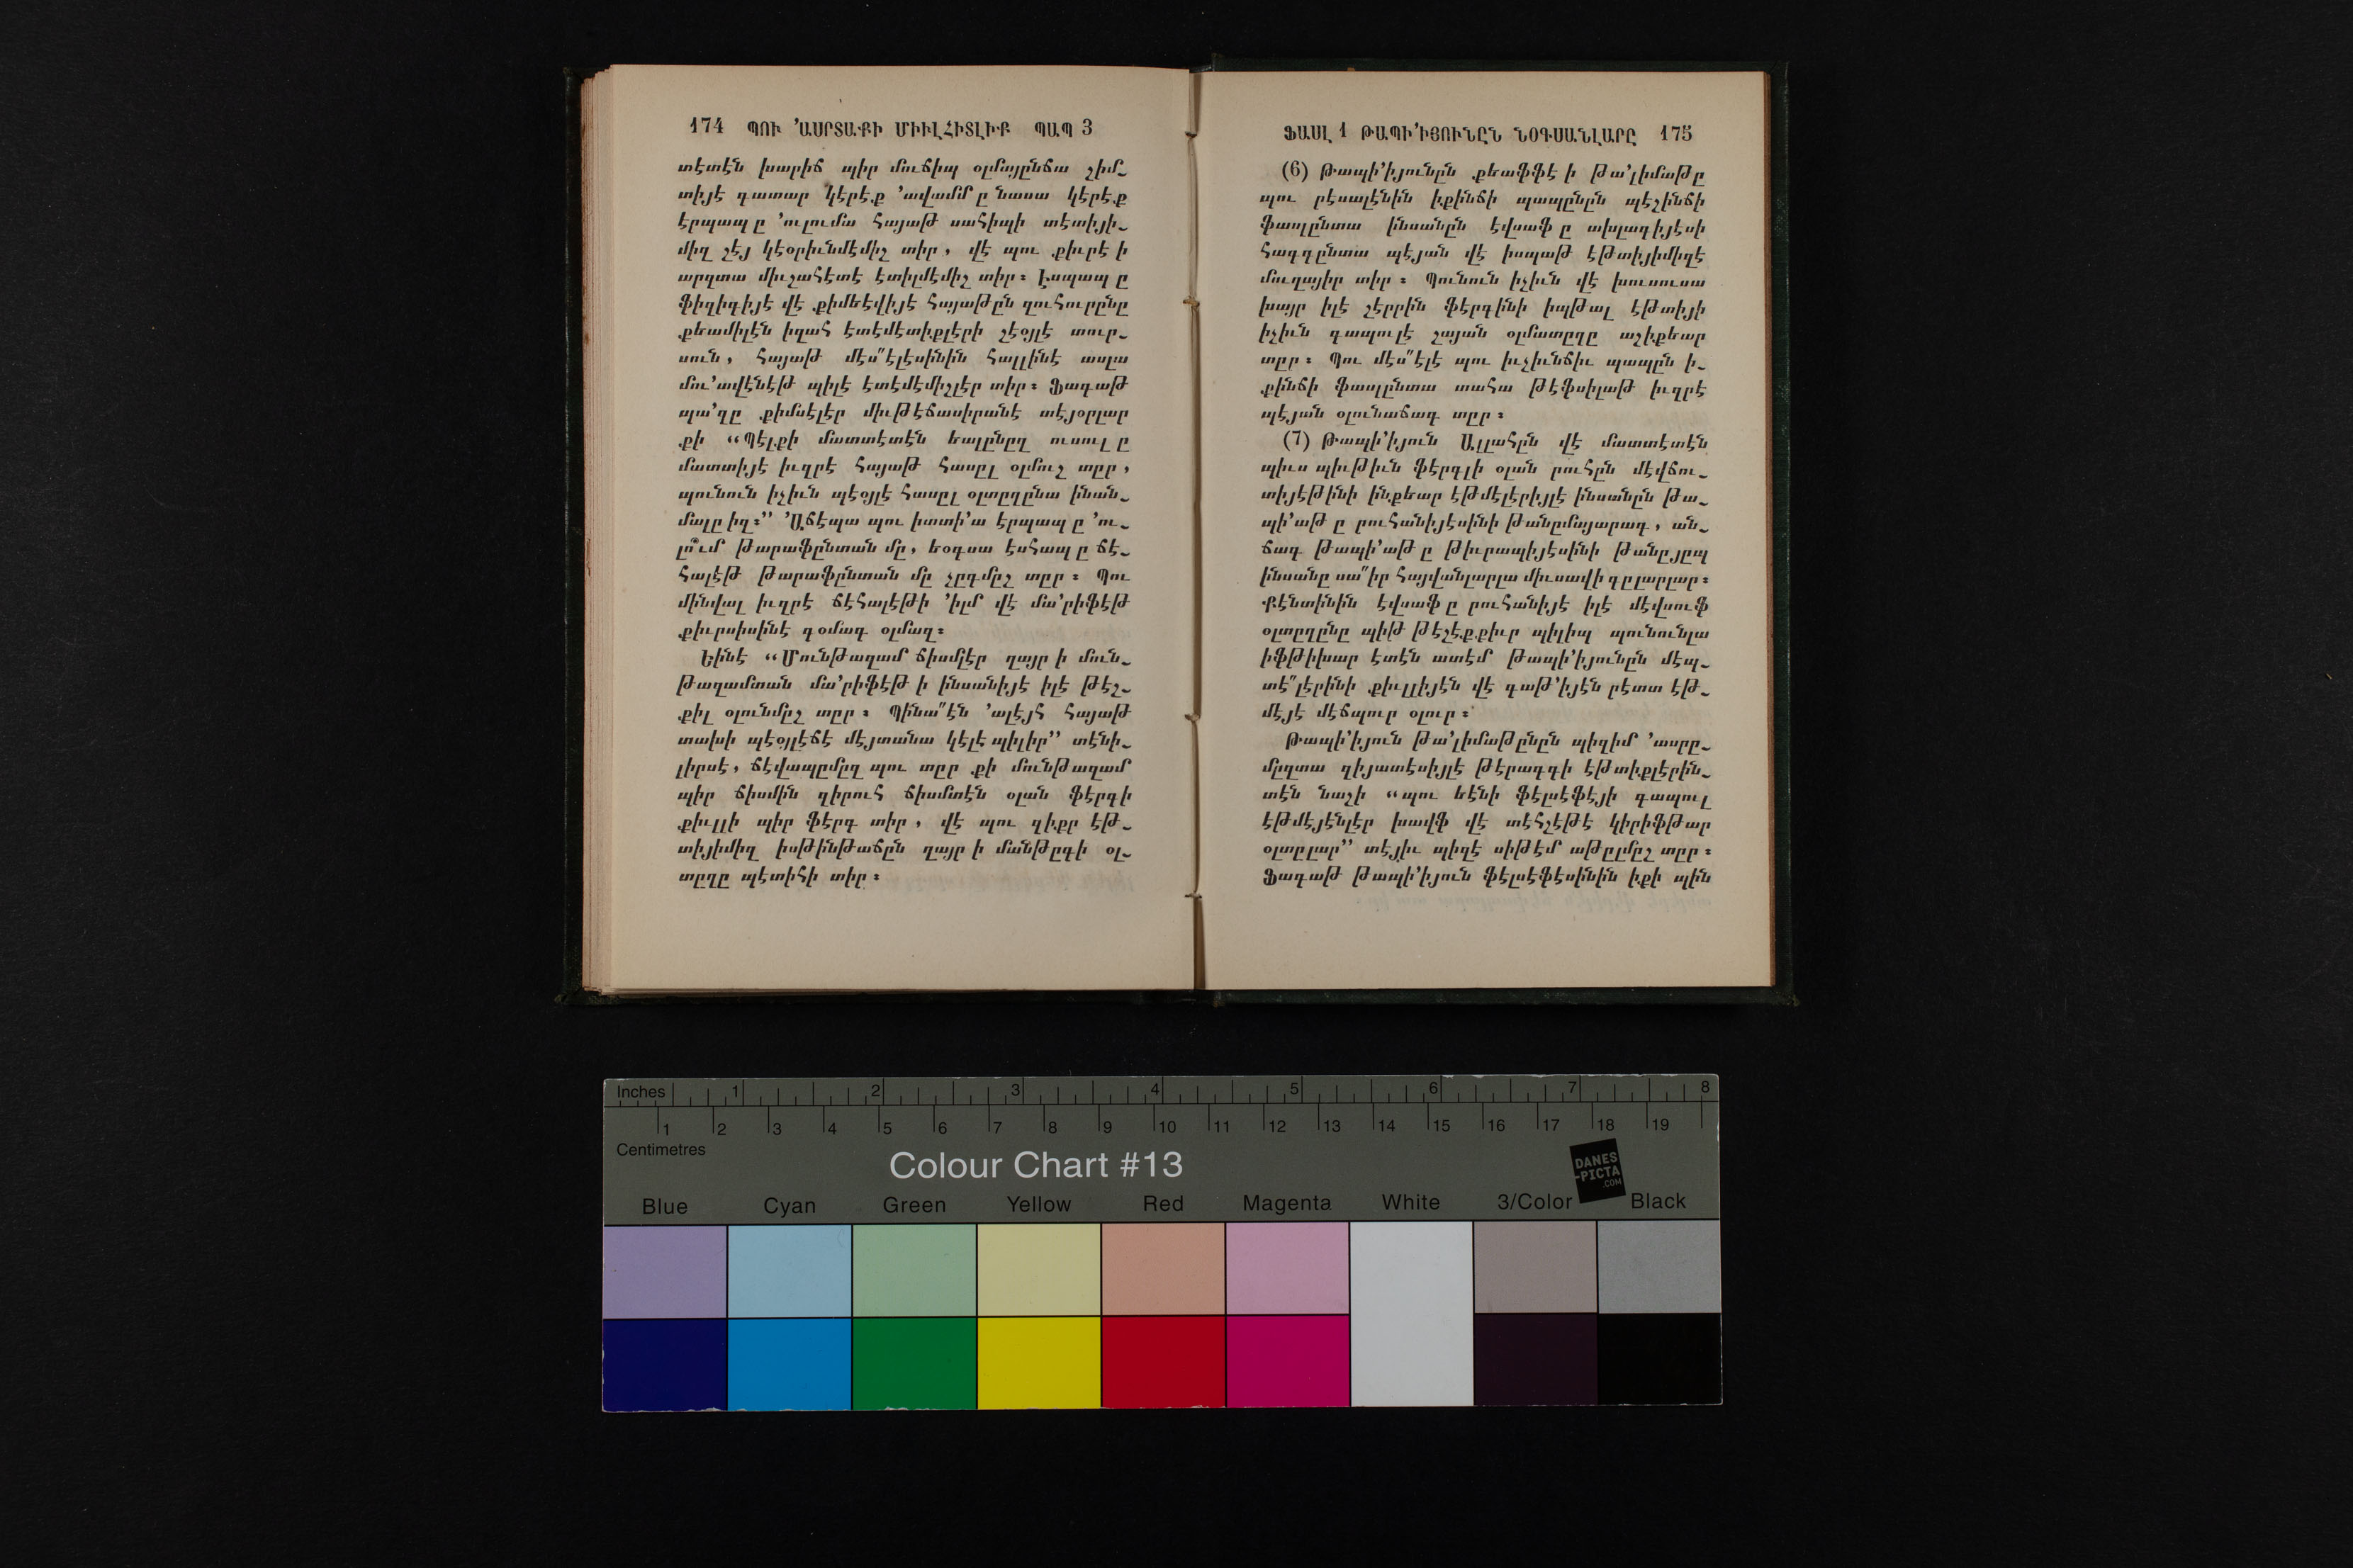 174 ՊՈՒ ՚ԱՍՐՏԱՔԻ ՄԻՒԼՀԻՏԼԻՔ ՊԱՊ 3
տէտէն խարիճ պիր մուճիպ օլմայընճա շիմ-
տիյէ գատար կէրէք ՚ավամմ ը նասա կէրէք
էրպապ ը ՚ուլումա հայաթ սահիպի տէտիյի-
միզ շէյ կէօրիւնմէմիշ տիր, վէ պու քիւրէ ի
արզտա միւշահէտէ էտիլմէմիշ տիր։ Էսպապ ը
ֆիզիգիյէ վէ քիմեէվիյէ հայաթըն զուհուրընը
քեամիլէն իզահ էտէմէտիքլէրի շէօյլէ տուր-
սուն, հայաթ մէս՞էլէսինին հալլինէ ասլա
մու՚ավէնէթ պիլէ էտէմէմիշլէր տիր։ Ֆագաթ
պա՚զը քիմսէլէր միւթէճասիրանէ տէյօրլար
քի “Պէլքի մատտէտէն եալընըզ ուսուլ ը
մատտիյէ իւզրէ հայաթ հասըլ օլմուշ տըր,
պունուն իչիւն պէօյլէ հասըլ օլտըղընա ինան-
մալը իզ։” ՚Աճէպա պու իտտի՚ա էրպապ ը ՚ու-
լո՞ւմ թարաֆընտան մը, եօգսա էսհապ ը ճէ-
հալէթ թարաֆընտան մը չըգմըշ տըր։ Պու
մինվալ իւզրէ ճէհալէթի ՚իլմ վէ մա՚րիֆէթ
քիւրսիսինէ գօմագ օլմազ։
Եինէ “Մունթազամ ճիսմլէր ղայր ի մուն-
թազամտան մա՚րիֆէթ ի ինսանիյէ իլէ թէշ-
քիլ օլունմըշ տըր։ Պինա՞էն ՚ալէյհ հայաթ
տախի պէօյլէճէ մէյտանա կէլէ պիլիր” տէնի-
լիրսէ, ճէվապըմըզ պու տըր քի մունթազամ
պիր ճիսմին զիրուհ ճիսմտէն օլան ֆէրգի
քիւլլի պիր ֆէրգ տիր, վէ պու զիքր էթ-
տիյիմիզ իսթինթաճըն ղայր ի մանթըգի օլ-
տըղը պէտիհի տիր։
ՖԱՍԼ 1 ԹԱՊԻ՚ԻՅՈՒՆԸՆ ՆՕԳՍԱՆԼԱՐԸ 175
(6) Թապի՚իյունըն քեաֆֆէ ի թա՚լիմաթը
պու րէսալէնին իքինճի պապընըն պէշինճի
ֆասլընտա ինսանըն էվսաֆ ը ախլագիյէսի
հագգընտա պէյան վէ իսպաթ էթտիյիմիզէ
մուղայիր տիր։ Պունուն իչիւն վէ խուսուսա
խայր իլէ շէրրին ֆէրգինի իպթալ էթտիյի
իչիւն գապուլէ շայան օլմատըղը աշիքեար
տըր։ Պու մէս՞էլէ պու իւչիւնճիւ պապըն ի-
քինճի ֆասլընտա տահա թէֆսիլաթ իւզրէ
պէյան օլունաճագ տըր։
(7) Թապի՚իյուն Ալլահըն վէ մատտէտէն
պիւս պիւթիւն ֆէրգլի օլան րուհըն մէվճու-
տիյէթինի ինքեար էթմէլէրիյլէ ինսանըն թա-
պի՚աթ ը րուհանիյէսինի թանըմայարագ, ան-
ճագ թապի՚աթ ը թիւրապիյէսինի թանըյըպ
ինսանը սա՞իր հայվանլարլա միւսավի գըլարլար։
Քէնտինին էվսաֆ ը րուհանիյէ իլէ մէվսուֆ
օլտըղընը պիթ թէշէքքիւր պիլիպ պունունլա
իֆթիխար էտէն ատէմ թապի՚իյունըն մէպ-
տէ՞լէրինի քիւլլիյէն վէ գաթ՚իյէն րէտտ էթ-
մէյէ մէճպուր օլուր։
Թապի՚իյուն թա՚լիմաթընըն պիզիմ ՚ասրը-
մըզտա զիյատէսիյլէ թէրագգի էթտիքլէրին-
տէն նաշի “պու եէնի ֆէլսէֆէյի գապուլ
էթմէյէնլէր խավֆ վէ տէհշէթէ կիրիֆթար
օլտըլար” տէյիւ պիզէ սիթէմ աթըլմըշ տըր։
Ֆագաթ թապի՚իյուն ֆէլսէֆէսինին իքի պին
Inches 1 2 3 4 5 6 7 8
1 2 3 4 5 6 7 8 9 10 11 12 13 14 15 16 17 18 19
Centimetres
Colour Chart #13
DANES
-PICTA
.COM
Blue Cyan Green Yellow Red Magenta White 3/Color Black